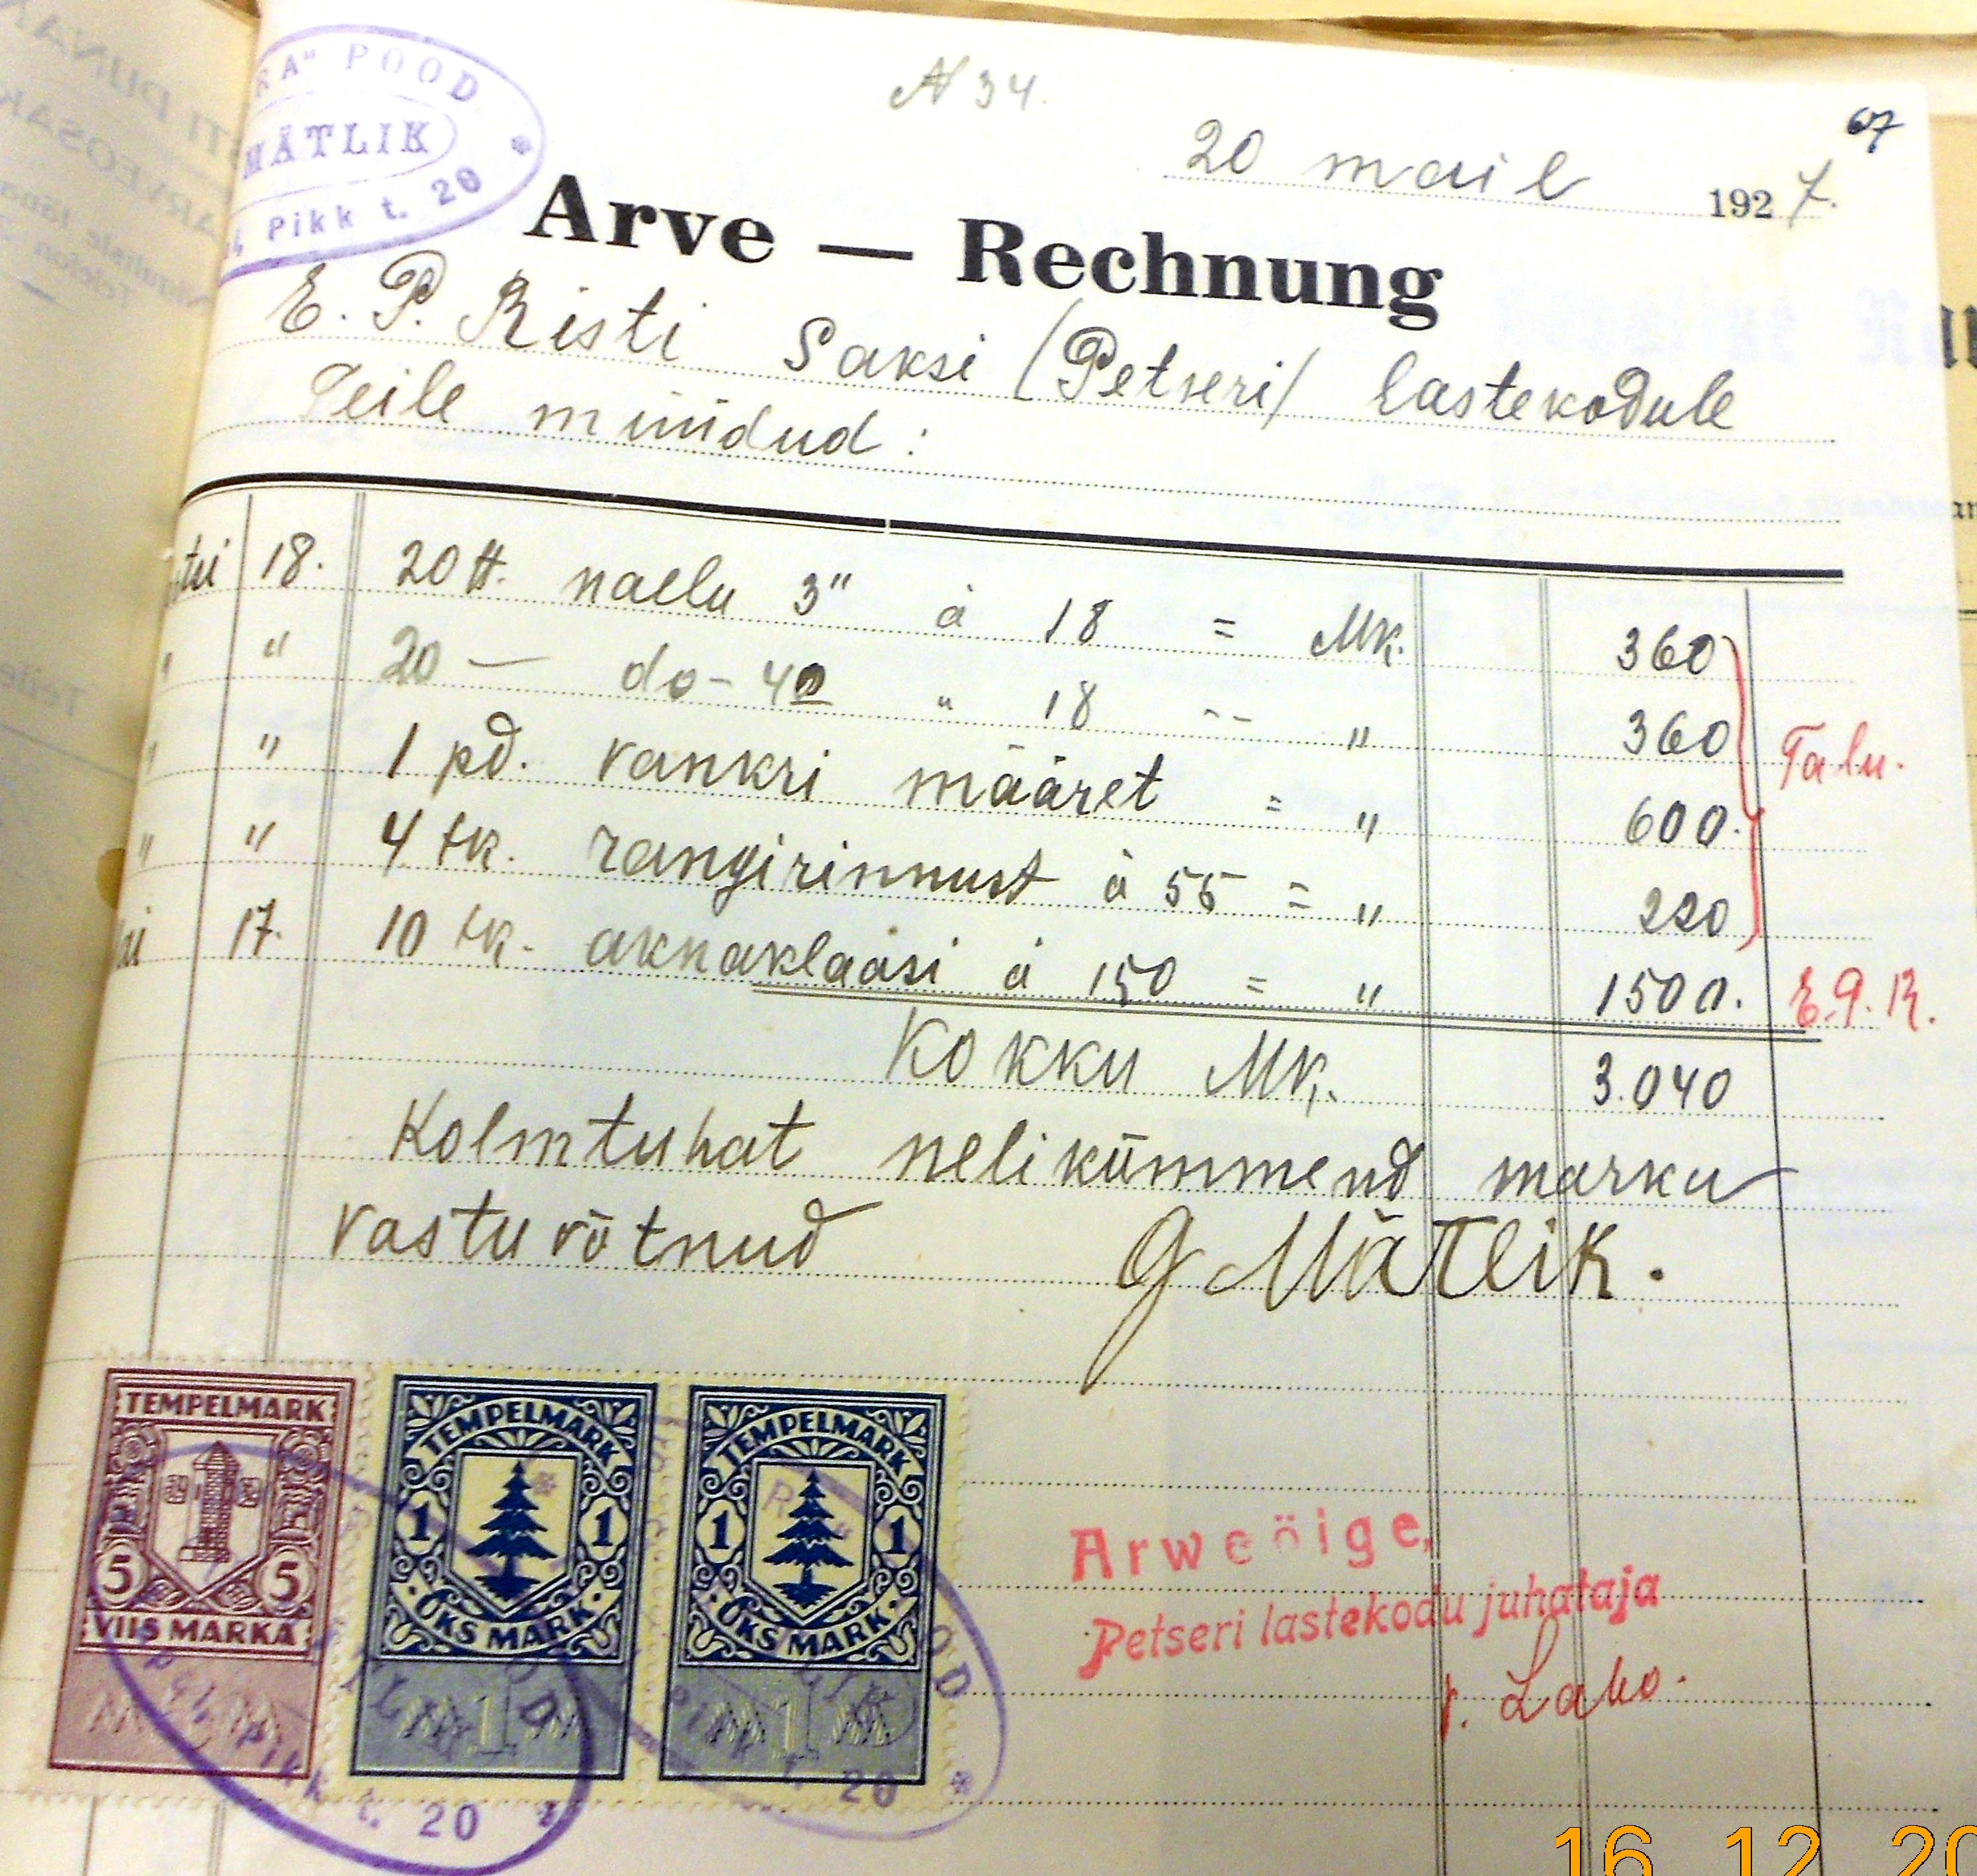 A" POOD
MÄTLIK
Pikk t. 20
N 34.
67
20 mail 1927.
Arve — Rechnung
E. P. Risti Saksi (Petseri) lastekodule
Teile müüdud:
18. 20 tt. naelu 3" á 18 = Mk. 360
" " 20 — do - 4" " 18 -- " 360
" " 1 pd. vankri määret = " 600.
" " 4 tk. rangirinnust á 55 = " 220
Talu.
17. 10 tk. aknaklaasi á 150 = " 1500.
E.P.R.
Kokku Mk. 3.040
Kolmtuhat nelikümmend marka
vastuvõtnud G Mätlik.
TEMPELMARK
5 5
VIIS MARKA
TEMPELMARK
1 1
ÜKS MARK
1
TEMPELMARK
1 1
ÜKS MARK
1
Pikk t. 20
t. 20
Arwe õige,
Petseri lastekodu juhataja
16 12 20